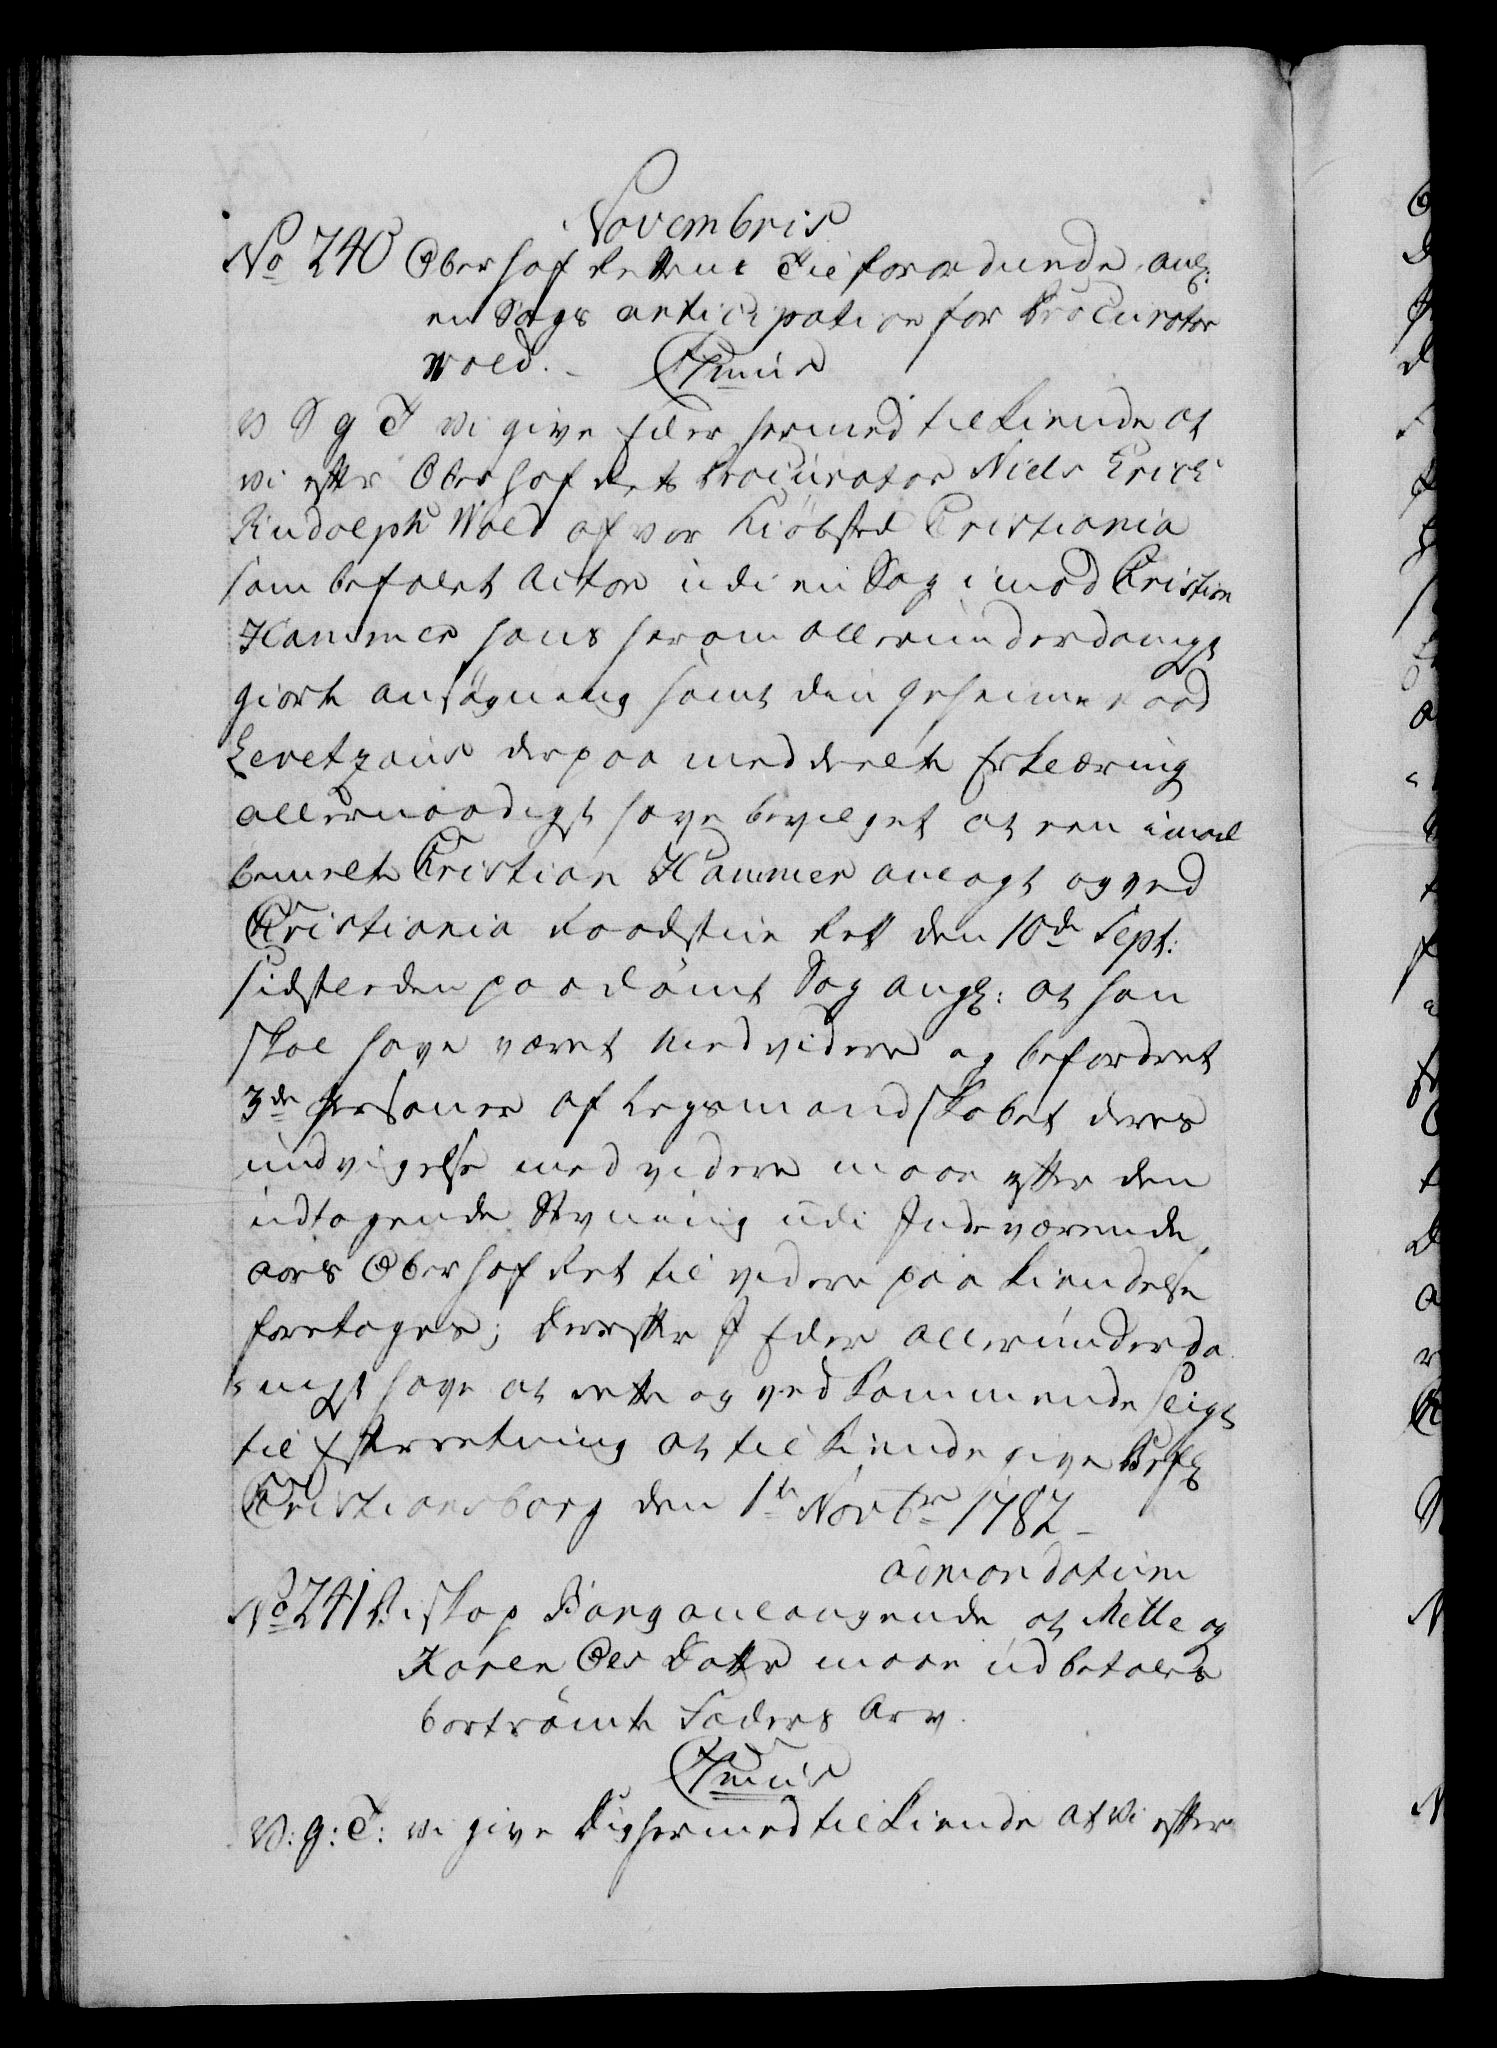 Novembris
No 240 Oberhof Rettens Tilforordnede, anlg:
en Sags anticipation for Procurator
Wold. C 7mus
V S G T Vi give Eder hermed tilkiende at
vi efter Oberhof Rets Procurator Niels Erich
Rudolph Wold af vor Kiøbsted Cristiania
som befalet Actor udi en Sag imod Cristian
Hammer hans herom allerunderdanigst
giorte ansøgning samt den Geheime Raad
Levetzaus derpaa meddeelte Erklæring
allernaadigst have bevilget at een imod
bemelte Cristian Hammer anlagt og ved
Cristiania Raadstue Rett den 10de Sept:
sidstleden paadømt Sag angl: at han
skal have været medvidere og befordret
3de Personer af Lægsmandskabet deres
undvigelse med videre maae efter den
udtagende Stevning udi Indeværende
aars Oberhof Ret til videre paakiendelse
foretages; derefter I Eder allerunderda
nigst have at rette og vedkommende sligt
til Efterretning at tilkiende give Befl
Cristiansborg den 1te Novbr 1782
ad mandatum
No 241 Biskop anlangende at Mette og
Karen Ols Datter maae udbetales
bortrømte Faders Arv.
C 7mus
V: G: T: Vi give Dig hermed tilkiende at Vi efter